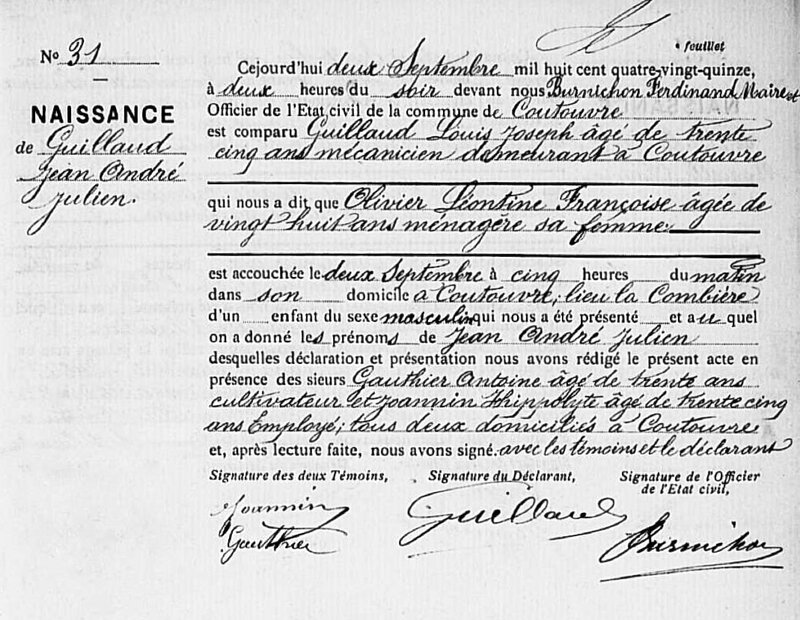 feuillet
N° 31
NAISSANCE
de Guillaud
Jean André
Julien.
Cejourd'hui deux Septembre mil huit cent quatre-vingt-quinze,
à deux heures du soir devant nous Burnichon Ferdinand Maire et
Officier de l'Etat civil de la commune de Coutouvre
est comparu Guillaud Louis Joseph âgé de trente
cinq ans mécanicien demeurant à Coutouvre
qui nous a dit que Olivier Léontine Françoise âgée de
vingt huit ans ménagère sa femme
est accouchée le deux Septembre à cinq heures du matin
dans son domicile à Coutouvre, lieu la Combière
d'un enfant du sexe masculin qui nous a été présenté et au quel
on a donné les prénoms de Jean André Julien
desquelles déclaration et présentation nous avons rédigé le présent acte en
présence des sieurs Gauthier Antoine âgé de trente ans
cultivateur et Joannin Hippolyte âgé de trente cinq
ans Employé; tous deux domiciliés à Coutouvre
et, après lecture faite, nous avons signé avec les témoins et le déclarant
Signature des deux Témoins, Signature du Déclarant, Signature de l'Officier
de l'Etat civil,
Joannin
Gauthier
Guillaud
Burnichon